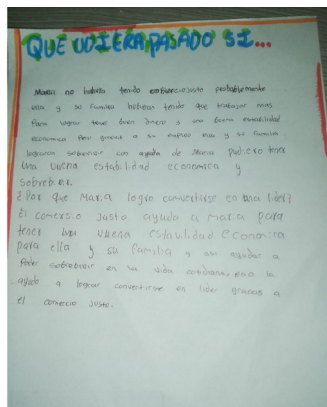 QUE UDIERA PASADO SI...
Maria no hubiera tenido probablemente
ella y su familia hubieran tenido que trabajar mas
Para lograr tener buen dinero y una buena estabilidad
economica Pero gracias a su ella y su familia
lograron sobrevivir con ayuda de Maria pudiero tener
una buena estabilidad economica y
sobrebivir.
¿Por que Maria logro convertirse en una lider?
El comersio Justo ayudo a maria para
tener una buena estabilidad economica
para ella y su familia y asi ayudar a
Poder sobrebivir en la vida cotidiana, eso la
ayudo a lograr convertirse en lider gracias a
el comercio Justo.